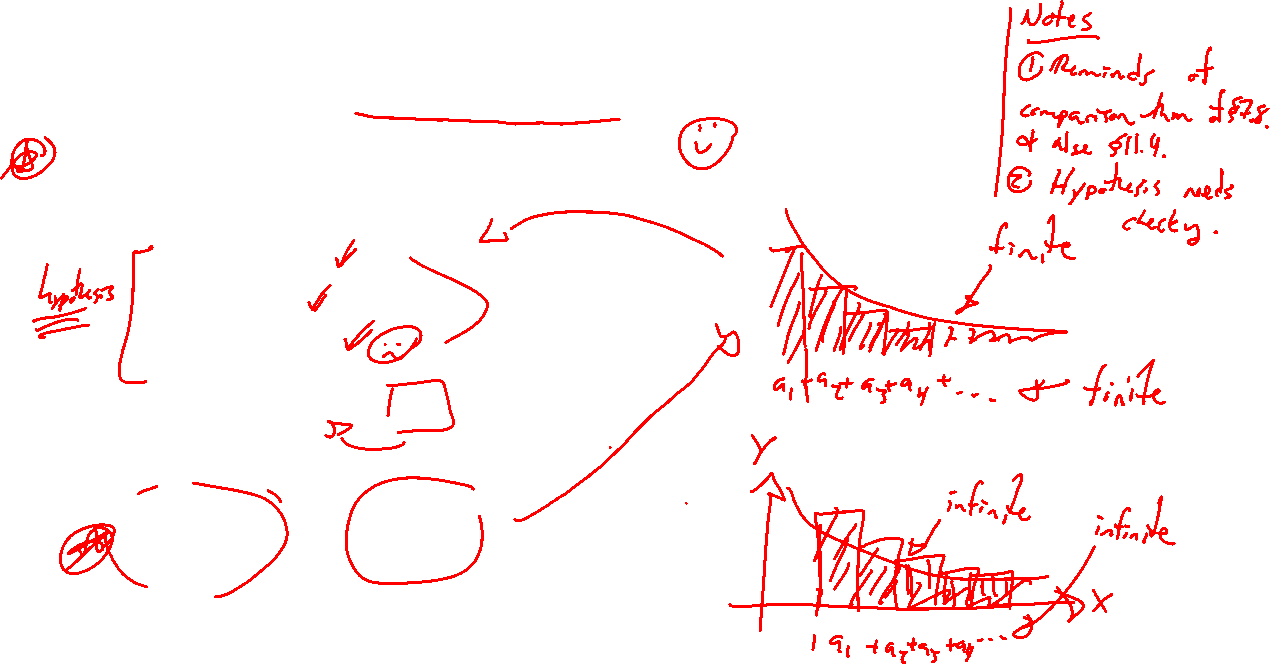 Notes
① Reminds of
comparison thm of §7.8.
& also §11.4.
② Hypothesis needs
checky.
finite
hypothesis
a₁ + a₂ + a₃ + a₄ + ...
finite
Y
infinite
infinite
X
1 a₁ + a₂ + a₃ + a₄ ...